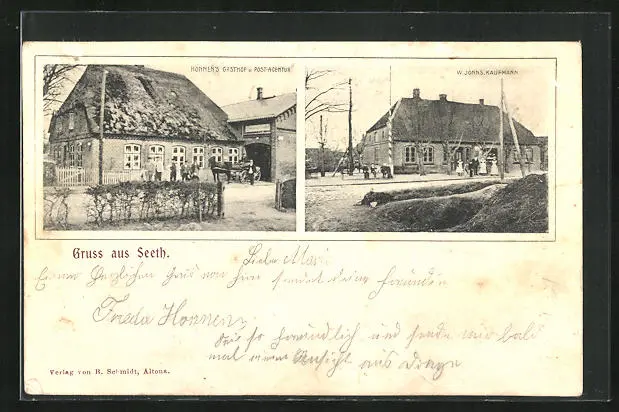 HONNENS GASTHOF u. POST-AGENTUR
W. JOHNS. KAUFMANN
Gruss aus Seeth.
Liebe Mari
Einen Herzlichen Gruß von hier sendet deine Freundin
Freda Honnens
Sei so freundlich und sende mir bald
mal eine Ansicht aus
Verlag von R. Schmidt, Altona.